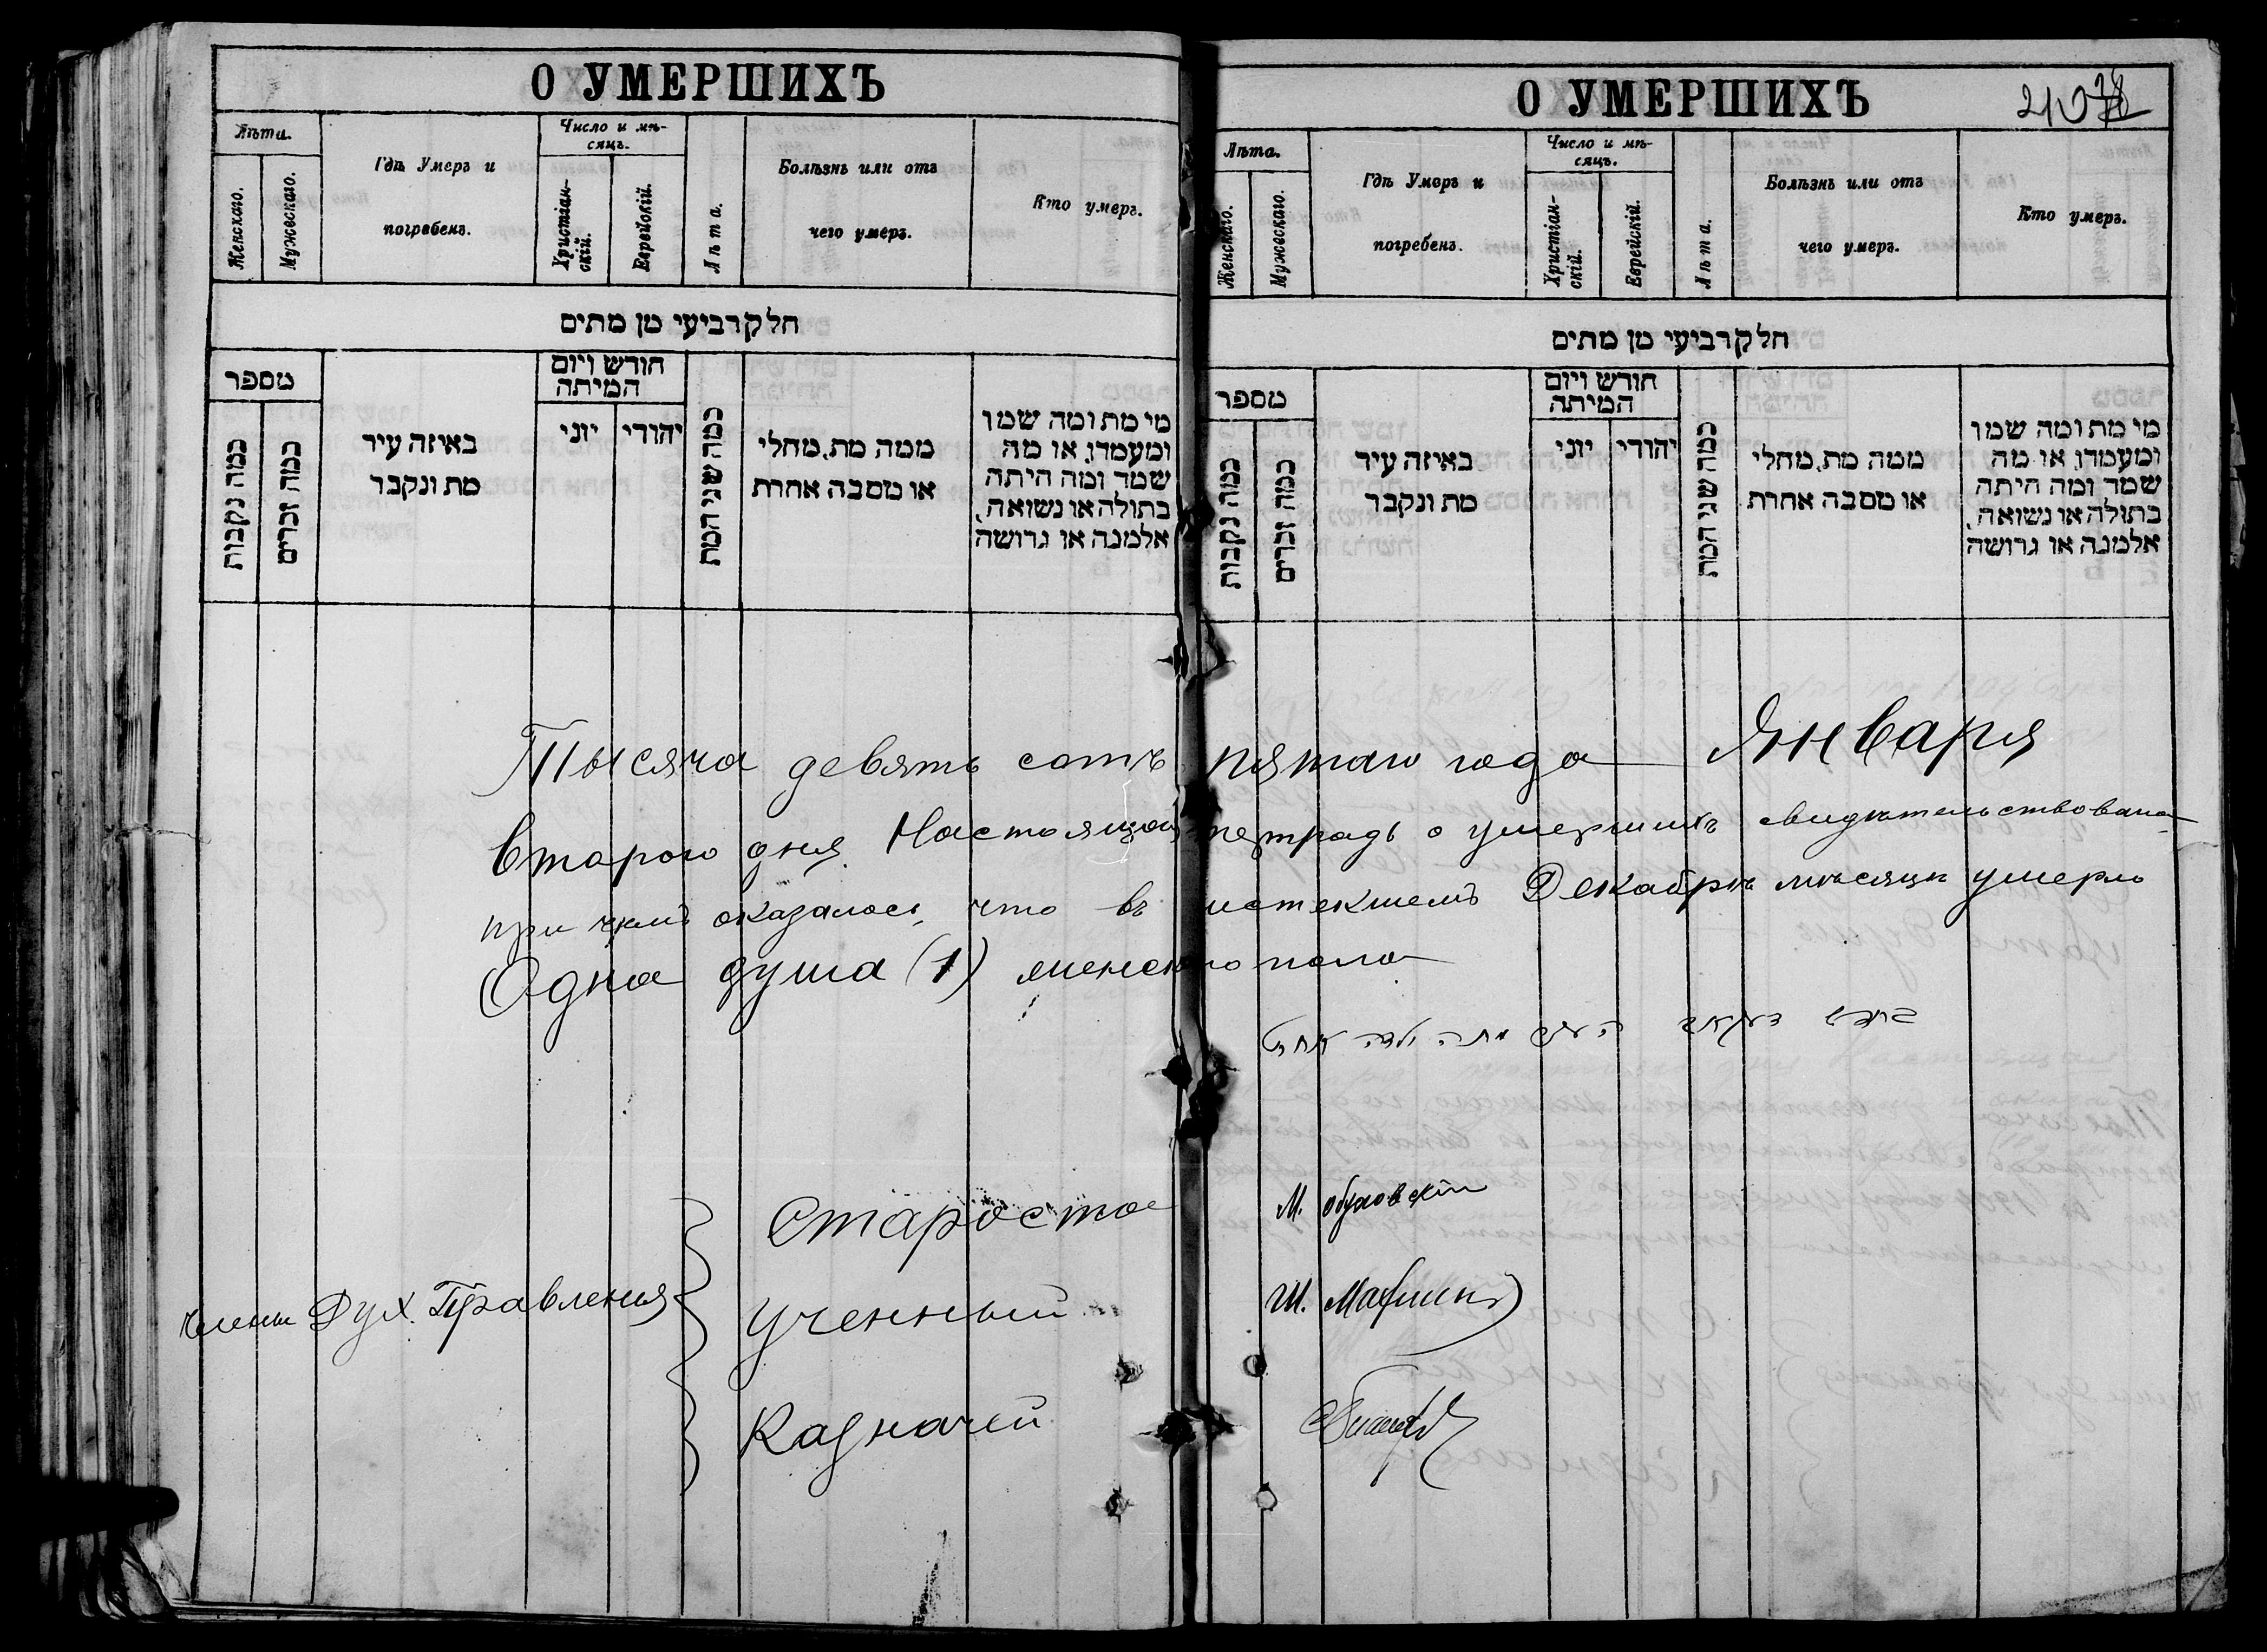 О УМЕРШИХЪ
Лѣта.
Женскаго.
Мужескаго.
Гдѣ Умеръ и
погребенъ.
Число и мѣ-
сяцъ.
Христіан-
скій.
Еврейскій.
Лѣта.
Болѣзнь или отъ
чего умеръ.
Кто умеръ.
חלק רביעי מן מתים
מספר
כמה נקבות
כמה זכרים
באיזה עיר
מת ונקבר
חודש ויום
המיתה
יוני
יהודי
כמה שני המת
ממה מת, מחלי
או מסבה אחרת
מי מת ומה שמו
ומעמדו, או מה
שמה ומה היתה
בתולה או נשואה,
אלמנה או גרושה
О УМЕРШИХЪ
Лѣта.
Женскаго.
Мужескаго.
Гдѣ Умеръ и
погребенъ.
Число и мѣ-
сяцъ.
Христіан-
скій.
Еврейскій.
Лѣта.
Болѣзнь или отъ
чего умеръ.
Кто умеръ.
חלק רביעי מן מתים
מספר
כמה נקבות
כמה זכרים
באיזה עיר
מת ונקבר
חודש ויום
המיתה
יוני
יהודי
כמה שני המת
ממה מת, מחלי
או מסבה אחרת
מי מת ומה שמו
ומעמדו, או מה
שמה ומה היתה
בתולה או נשואה,
אלמנה או גרושה
Тысяча девять сотъ пятаго года Января
Втораго дня Настоящая тетрадь о умершихъ свидѣтельствована
при чемъ оказалось, что въ истекшемъ Декабрѣ мѣсяцѣ умерло
Одна душа (1) женскаго пола
Члены Дух. Правленія
Староста М. Обуховскій
Ученный Ш.
Казначей